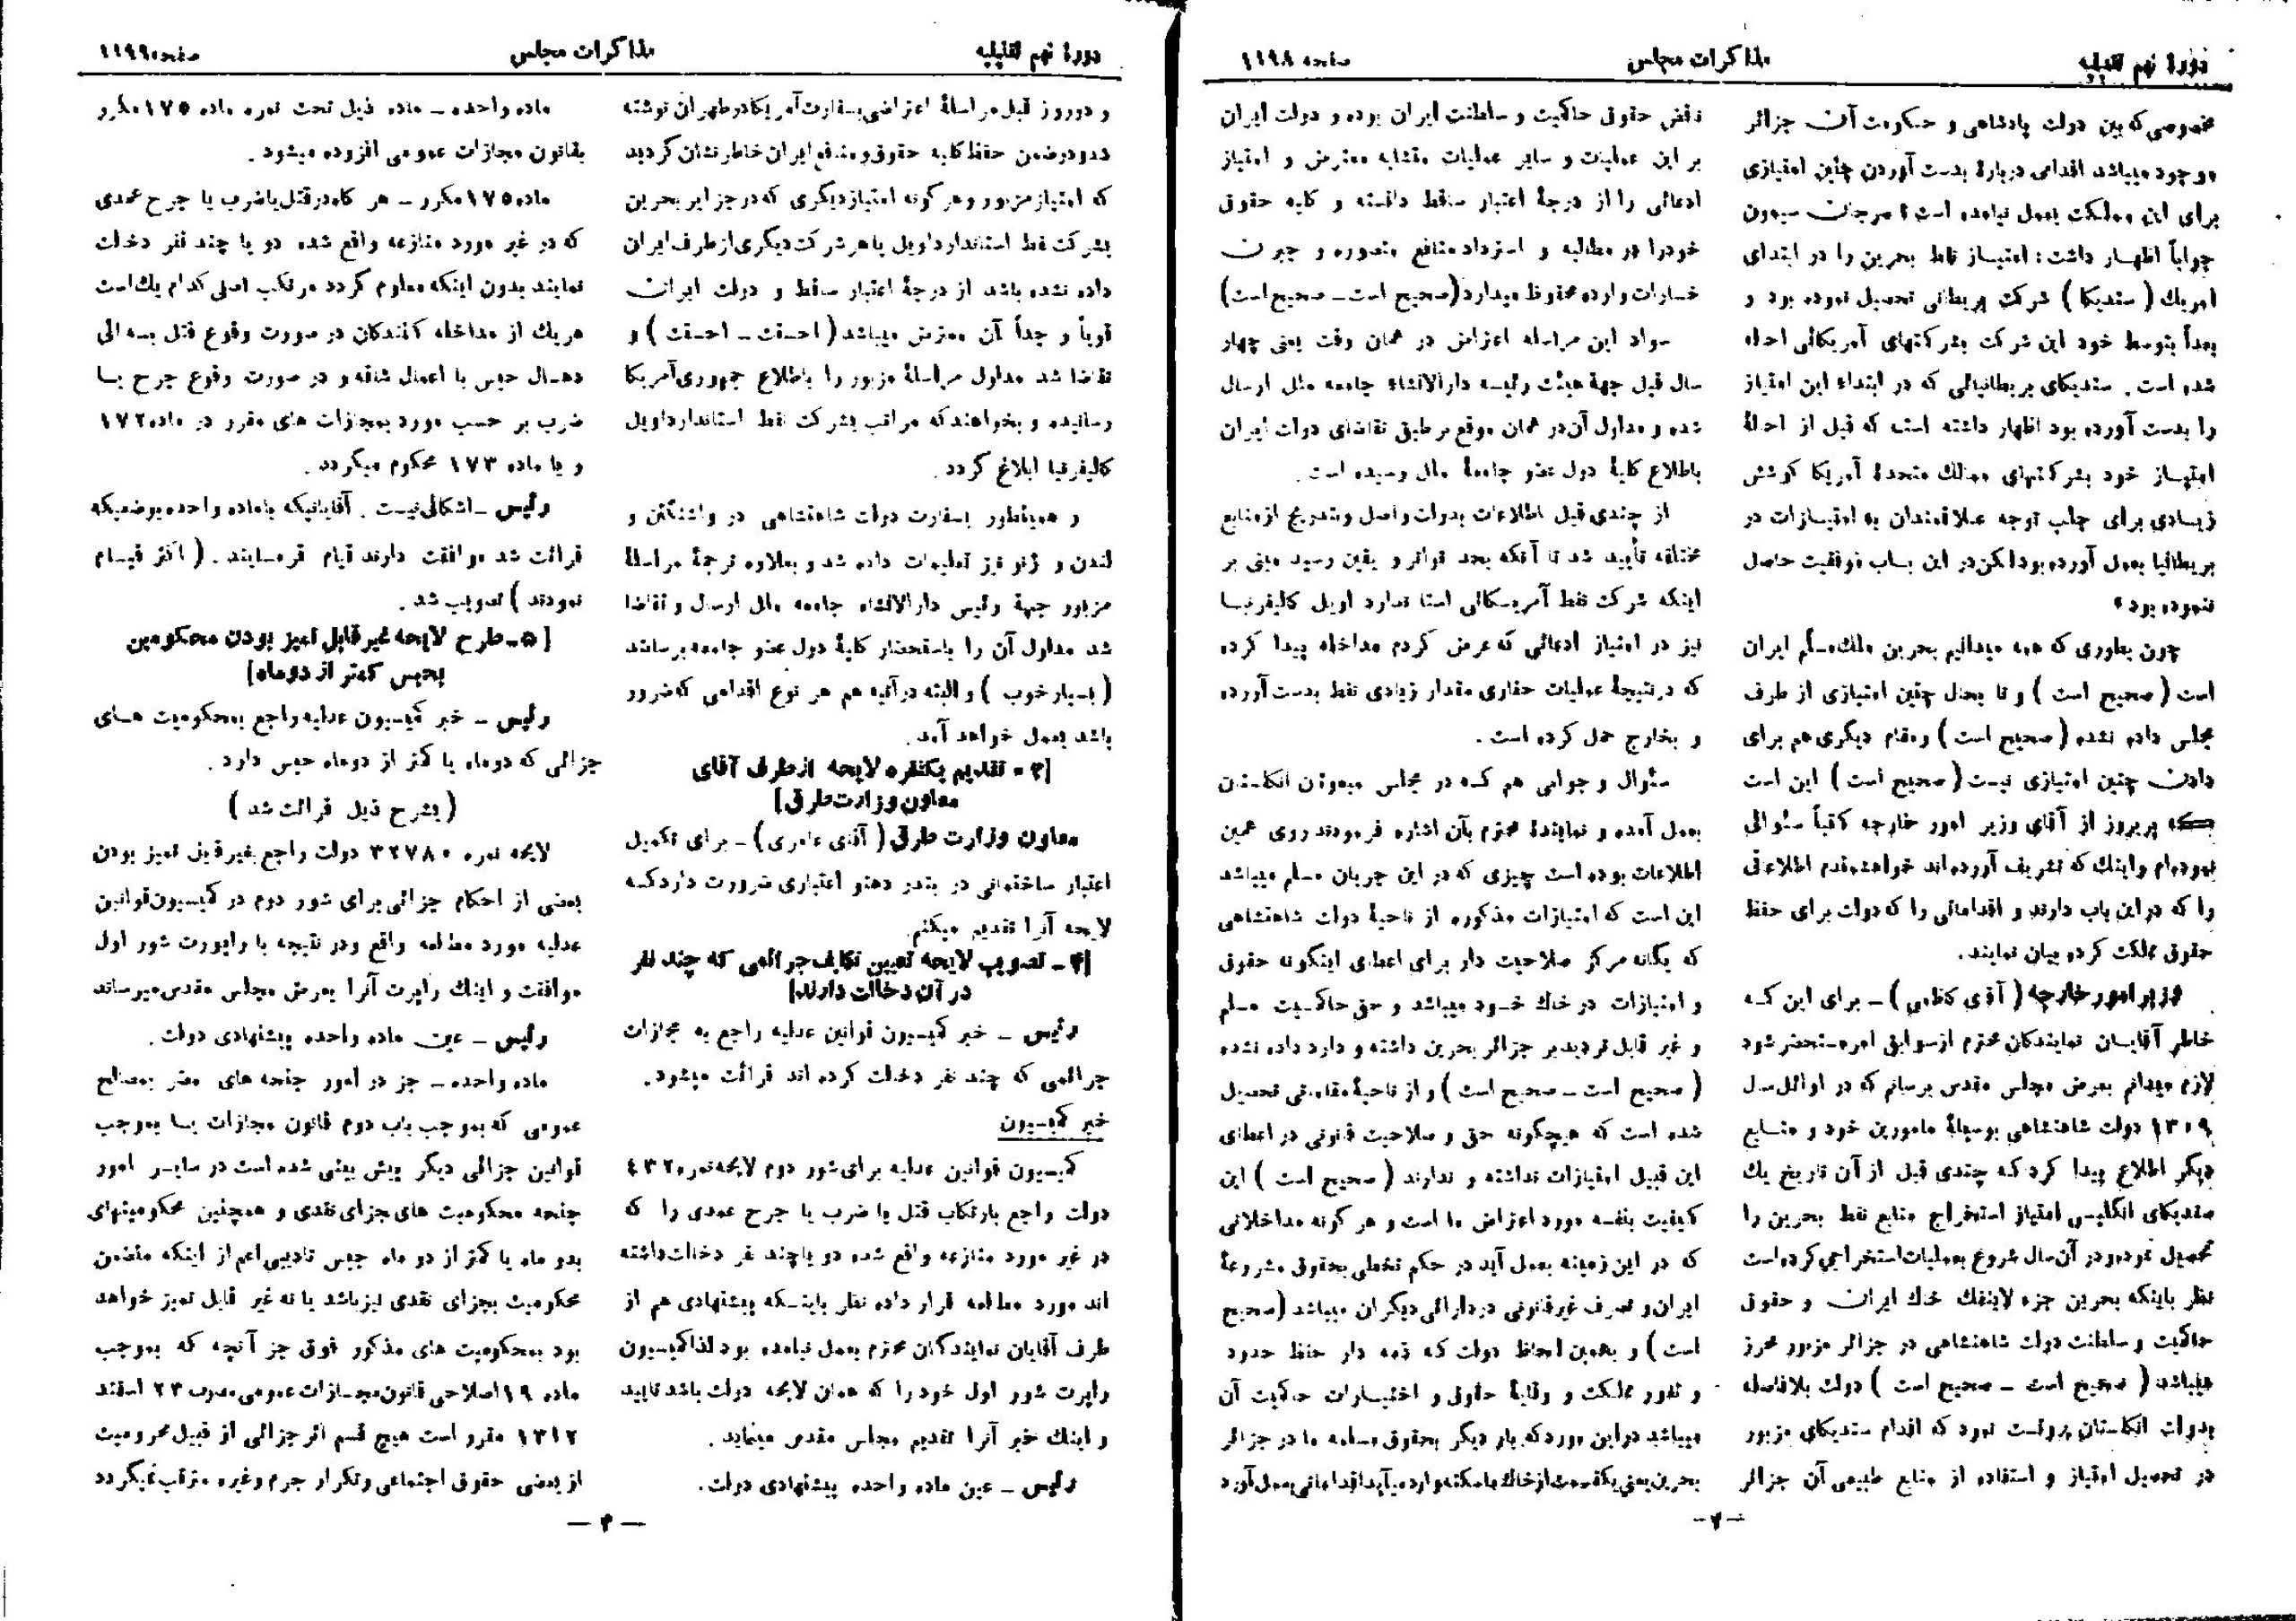 دورهٔ نهم تقنینیه
مذاکرات مجلس
صفحه ۱۱۹۸
مخصوصی که بین دولت پادشاهی و حکومت آن جزائر
موجود میباشد اقدامی دربارهٔ بدست آوردن چنین امتیازی
برای این مملکت بعمل نیامده است؟ سرجان سیمون
جواباً اظهار داشت: امتیاز نفط بحرین را در ابتدای
امریك ( سندیکا ) شرکت بریطانی تحصیل نموده بود و
بعداً بتوسط خود این شرکت بشرکتهای آمریکائی احاله
شده است . سندیکای بریطانیائی که در ابتداء این امتیاز
را بدست آورده بود اظهار داشته است که قبل از احالهٔ
امتیاز خود بشرکتهای ممالك متحدهٔ آمریکا کوشش
زیادی برای جلب توجه علاقمندان به امتیازات در
بریطانیا بعمل آورده بود لکن در این باب موفقیت حاصل
ننموده بود»
چون بطوری که همه میدانیم بحرین ملك مسلم ایران
است ( صحیح است ) و تا بحال چنین امتیازی از طرف
مجلس داده نشده ( صحیح است ) و مقام دیگری هم برای
دادن چنین امتیازی نیست ( صحیح است ) این است
که پریروز از آقای وزیر امور خارجه کتباً سئوالی
نموده‌ام و اینك که تشریف آورده‌اند خواهشمندم اطلاعاتی
را که در این باب دارند و اقداماتی را که دولت برای حفظ
حقوق مملکت کرده بیان نمایند.
وزیر امور خارجه ( آقای کاظمی ) ـ برای این کـه
خاطر آقایـان نمایندکان محترم از سوابق امر مستحضر شود
لازم میدانم بعرض مجلس مقدس برسانم که در اوائل سال
۱۳۰۹ دولت شاهنشاهی بوسیلهٔ مامورین خود و منـابع
دیگر اطلاع پیدا کرد که چندی قبل از آن تاریخ یك
سندیکای انگلیس امتیاز استخراج منابع نفط بحرین را
تحصیل نموده و در آن سال شروع بعملیات استخراجی کرده است
نظر باینکه بحرین جزء لاینفك خاك ایران و حقوق
حاکمیت و سلطنت دولت شاهنشاهی در جزائر مزبور محرز
میباشد ( صحیح است ـ صحیح است ) دولت بلافاصله
بدولت انگلستان پروتست نمود که اقدام سندیکای مزبور
در تحصیل امتیاز و استفاده از منابع طبیعی آن جزائر
نقض حقوق حاکمیت و سلطنت ایران بوده و دولت ایران
بر این عملیات و سایر عملیات مشابه معترض و امتیاز
ادعائی را از درجهٔ اعتبار ساقط دانسته و کلیه حقوق
خودرا در مطالبه و استرداد منافع متصوره و جبران
خسارات وارده محفوظ میدارد (صحیح است ـ صحیح است)
سواد این مراسله اعتراض در همان وقت یعنی چهار
سال قبل جهة هیئت رئیسه دارالانشاء جامعه ملل ارسال
شده و مدلول آن در همان موقع بر طبق تقاضای دولت ایران
باطلاع کلیهٔ دول عضو جامعهٔ ملل رسیده است .
از چندی قبل اطلاعات بدولت واصل و بتدریج از منابع
مختلفه تأیید شد تا آنکه بحد تواتر و یقین رسید مبنی بر
اینکه شرکت نفط آمریکائی استاندارد اویل کالیفرنیـا
نیز در امتیاز ادعائی که عرض کردم مداخله پیدا کرده
که در نتیجهٔ عملیات حفاری مقدار زیادی نفط بدست آورده
و بخارج حمل کرده است .
سئوال و جوابی هم کـه در مجلس مبعوثان انگلستان
بعمل آمده و نمایندهٔ محترم بآن اشاره فرمودند روی همین
اطلاعات بوده است چیزی که در این جریان مسلم میباشد
این است که امتیازات مذکوره از ناحیهٔ دولت شاهنشاهی
که یگانه مرکز صلاحیت دار برای اعطای اینگونه حقوق
و امتیازات در خاك خـود میباشد و حق حاکمیت مسلم
و غیر قابل تردید بر جزائر بحرین داشته و دارد داده نشده
( صحیح است ـ صحیح است ) و از ناحیهٔ مقاماتی تحصیل
شده است که هیچگونه حق و صلاحیت قانونی در اعطای
این قبیل امتیازات نداشته و ندارند ( صحیح است ) این
کیفیت بنفسه مورد اعتراض ما است و هر گونه مداخلاتی
که در این زمینه بعمل آید در حکم تخطی بحقوق مشروعهٔ
ایران و تصرف غیرقانونی در دارائی دیگران میباشد (صحیح
است ) و بهمین لحاظ دولت که ذمه دار حفظ حدود
و ثغور مملکت و وقایهٔ حقوق و اختیـارات حاکمیت آن
میباشد در این مورد که بار دیگر بحقوق مسلمه ما در جزائر
بحرین یعنی یکقسمت از خاك ما سکته وارد میآید اقداماتی بعمل آورد
ـ ۲ ـ
دورهٔ نهم تقنینیه
مذاکرات مجلس
صفحه ۱۱۹۹
و دو روز قبل مراسلهٔ اعتراضی بسفارت آمریکا در طهران نوشته
شد و در ضمن حفظ کلیه حقوق و منافع ایران خاطر نشان کردید
که امتیاز مزبور و هر گونه امتیاز دیگری که در جزایر بحرین
بشرکت نفط استاندارد اویل یا هر شرکت دیگری از طرف ایران
داده نشده باشد از درجهٔ اعتبار ساقط و دولت ایران
قویاً و جداً آن معترض میباشد ( احسنت ـ احسنت ) و
تقاضا شد مدلول مراسلهٔ مزبور را باطلاع جمهوری آمریکا
رسانیده و بخواهند که مراتب بشرکت نفط استاندارد اویل
کالیفرنیا ابلاغ گردد.
و همینطور بسفارت دولت شاهنشاهی در واشنگتن و
لندن و ژنو نیز تعلیمات داده شد و بعلاوه ترجمهٔ مراسلهٔ
مزبور جهة رئیس دارالانشاء جامعه ملل ارسال و تقاضا
شد مدلول آن را باستحضار کلیهٔ دول عضو جامعه برسانند
( بسیار خوب ) و البته در آتیه هم هر نوع اقدامی که ضرور
باشد بعمل خواهد آمد.
[۳ ـ تقدیم یکفقره لایحه از طرف آقای
معاون وزارت طرق]
معاون وزارت طرق ( آقای عامری ) ـ برای تکمیل
اعتبار ساختمانی در بندر دهنو اعتباری ضرورت دارد که
لایحه آنرا تقدیم میکنم
[۴ ـ تصویب لایحه تعیین تکلیف جرائمی که چند نفر
در آن دخالت دارند]
رئیس ـ خبر کمیسیون قوانین عدلیه راجع به مجازات
جرائمی که چند نفر دخالت کرده اند قرائت میشود.
خبر کمیسیون
کمیسیون قوانین عدلیه برای شور دوم لایحه نمره ۴۳۲۰
دولت راجع بارتکاب قتل یا ضرب یا جرح عمدی را که
در غیر مورد منازعه واقع شده دو یا چند نفر دخالت داشته
اند مورد مطالعه قرار داده نظر باینـکه پیشنهادی هم از
طرف آقایان نمایندکان محترم بعمل نیامده بود لذا کمیسیون
راپرت شور اول خود را که همان لایحه دولت باشد تایید
و اینك خبر آنرا تقدیم مجلس مقدس مینماید .
رئیس ـ عین ماده واحده پیشنهادی دولت.
ماده واحده ـ ماده ذیل تحت نمره ماده ۱۷۵ مکرر
بقانون مجازات عمومی افزوده میشود .
ماده ۱۷۵ مکرر ـ هر گاه در قتل یا ضرب یا جرح عمدی
که در غیر مورد منازعه واقع شده دو یا چند نفر دخالت
نمایند بدون اینکه معلوم گردد مرتکب اصلی کدام یك است
هر یك از مداخله کنندکان در صورت وقوع قتل بسه الی
ده سال حبس با اعمال شاقه و در صورت وقوع جرح یـا
ضرب بر حسب مورد بمجازات های مقرر در ماده ۱۷۲
و یا ماده ۱۷۳ محکوم میگردد .
رئیس ـ اشکالی نیست . آقایانیکه با ماده واحده بوضعیکه
قرائت شد موافقت دارند قیام فرمـایند . ( اکثر قیـام
نمودند ) تصویب شد .
[ ۵ ـ طرح لایحه غیر قابل تمیز بودن محکومین
بحبس کمتر از دو ماه]
رئیس ـ خبر کمیسیون عدلیه راجع بمحکومیت هـای
جزائی که دو ماه یا کمتر از دو ماه حبس دارد .
( بشرح ذیل قرائت شد )
لایحه نمره ۳۲۷۸۰ دولت راجع بغیر قابل تمیز بودن
بعضی از احکام جزائی برای شور دوم در کمیسیون قوانین
عدلیه مورد مطالعه واقع و در نتیجه با راپورت شور اول
موافقت و اینك راپرت آنرا بعرض مجلس مقدس میرساند
رئیس ـ عین ماده واحده پیشنهادی دولت .
ماده واحده ـ جز در امور جنحه های مضر بمصالح
عمومی که بموجب باب دوم قانون مجازات یـا بموجب
قوانین جزائی دیگر پیش بینی شده است در سایـر امور
جنحه محکومیت های جزای نقدی و همچنین محکومیتهای
بدو ماه یا کمتر از دو ماه حبس تادیبی اعم از اینکه متضمن
محکومیت بجزای نقدی نیز باشد یا نه غیر قابل تمیز خواهد
بود بمحکومیت های مذکور فوق جز آنچه که بموجب
ماده ۱۹ اصلاحی قانون مجـازات عمومی مصوب ۲۳ اسفند
۱۳۱۲ مقرر است هیچ قسم اثر جزائی از قبیل محرومیت
از بعضی حقوق اجتماعی و تکرار جرم و غیره مترتب نمیگردد
ـ ۳ ـ